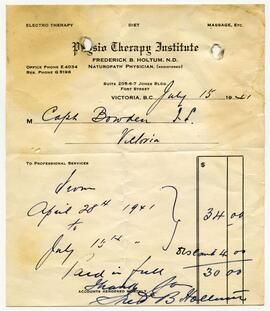 ELECTRO THERAPY DIET MASSAGE, ETC.
Physio Therapy Institute
FREDERICK B. HOLTUM, N.D.
OFFICE PHONE E 4034
NATUROPATH PHYSICIAN, (REGISTERED)
RES. PHONE G 5196
SUITE 205-6-7 JONES BLDG.
FORT STREET
VICTORIA, B.C. July 15 1941
M Capt Bowden
Victoria
TO PROFESSIONAL SERVICES $
From
April 28th 1941 34 00
to
July 15th Discount 4 00
Paid in full 30 00
Thank You
ACCOUNTS RENDERED MONTHLY
Fred B Holtum